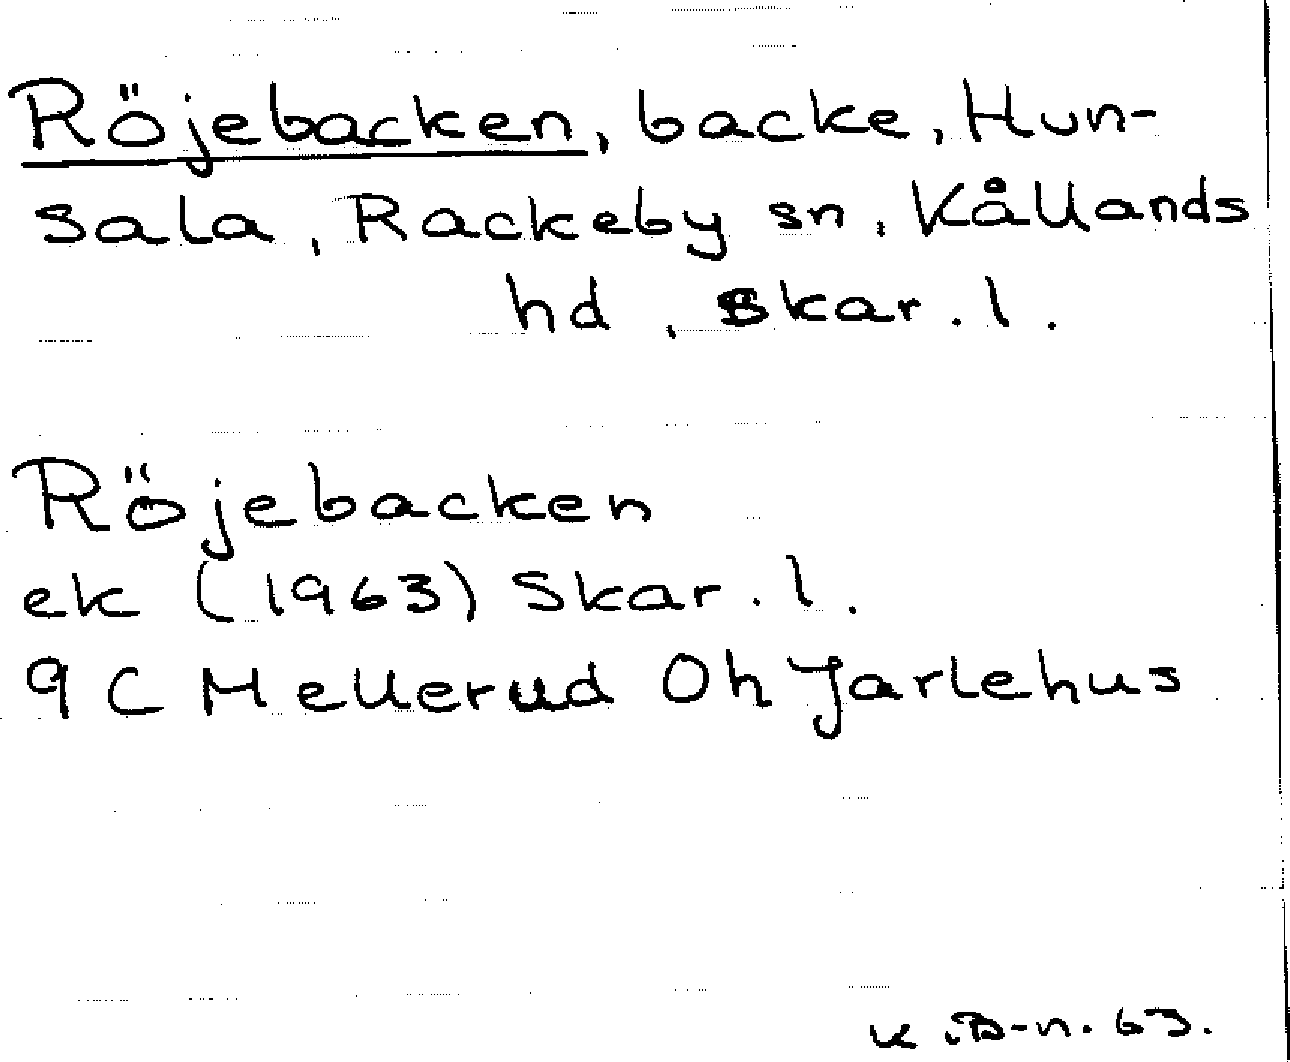 Röjebacken, backe, Hun-
sala, Rackeby sn, Kållands
hd, Skar. l.
Röjebacken
ek (1963) Skar. l.
9 C Mellerud Oh Jarlehus
K.B-n. 63.